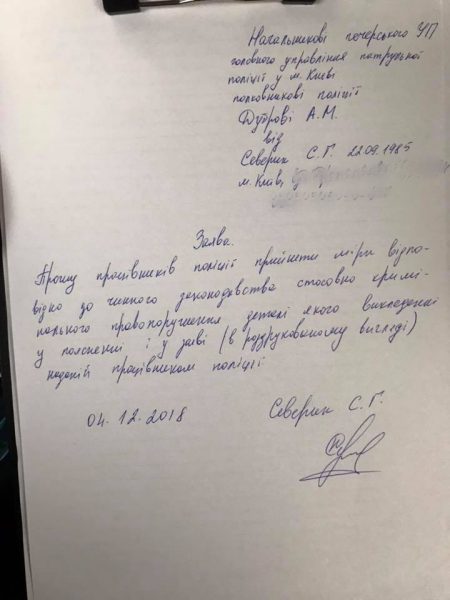 Начальникові печерського УП
головного управління патрульної
поліції у м. Києві
полковникові поліції
Дутрові А.М.
від
Северин С.Г. 22.09.1985
м. Київ,
Заява.
Прошу працівників поліції прийняти міри відпо-
відно до чинного законодавства стосовно кримі-
нального правопорушення деталі якого викладені
у поясненні і у заяві (в роздрукованому вигляді)
наданій працівникам поліції
04.12.2018
Северин С.Г.